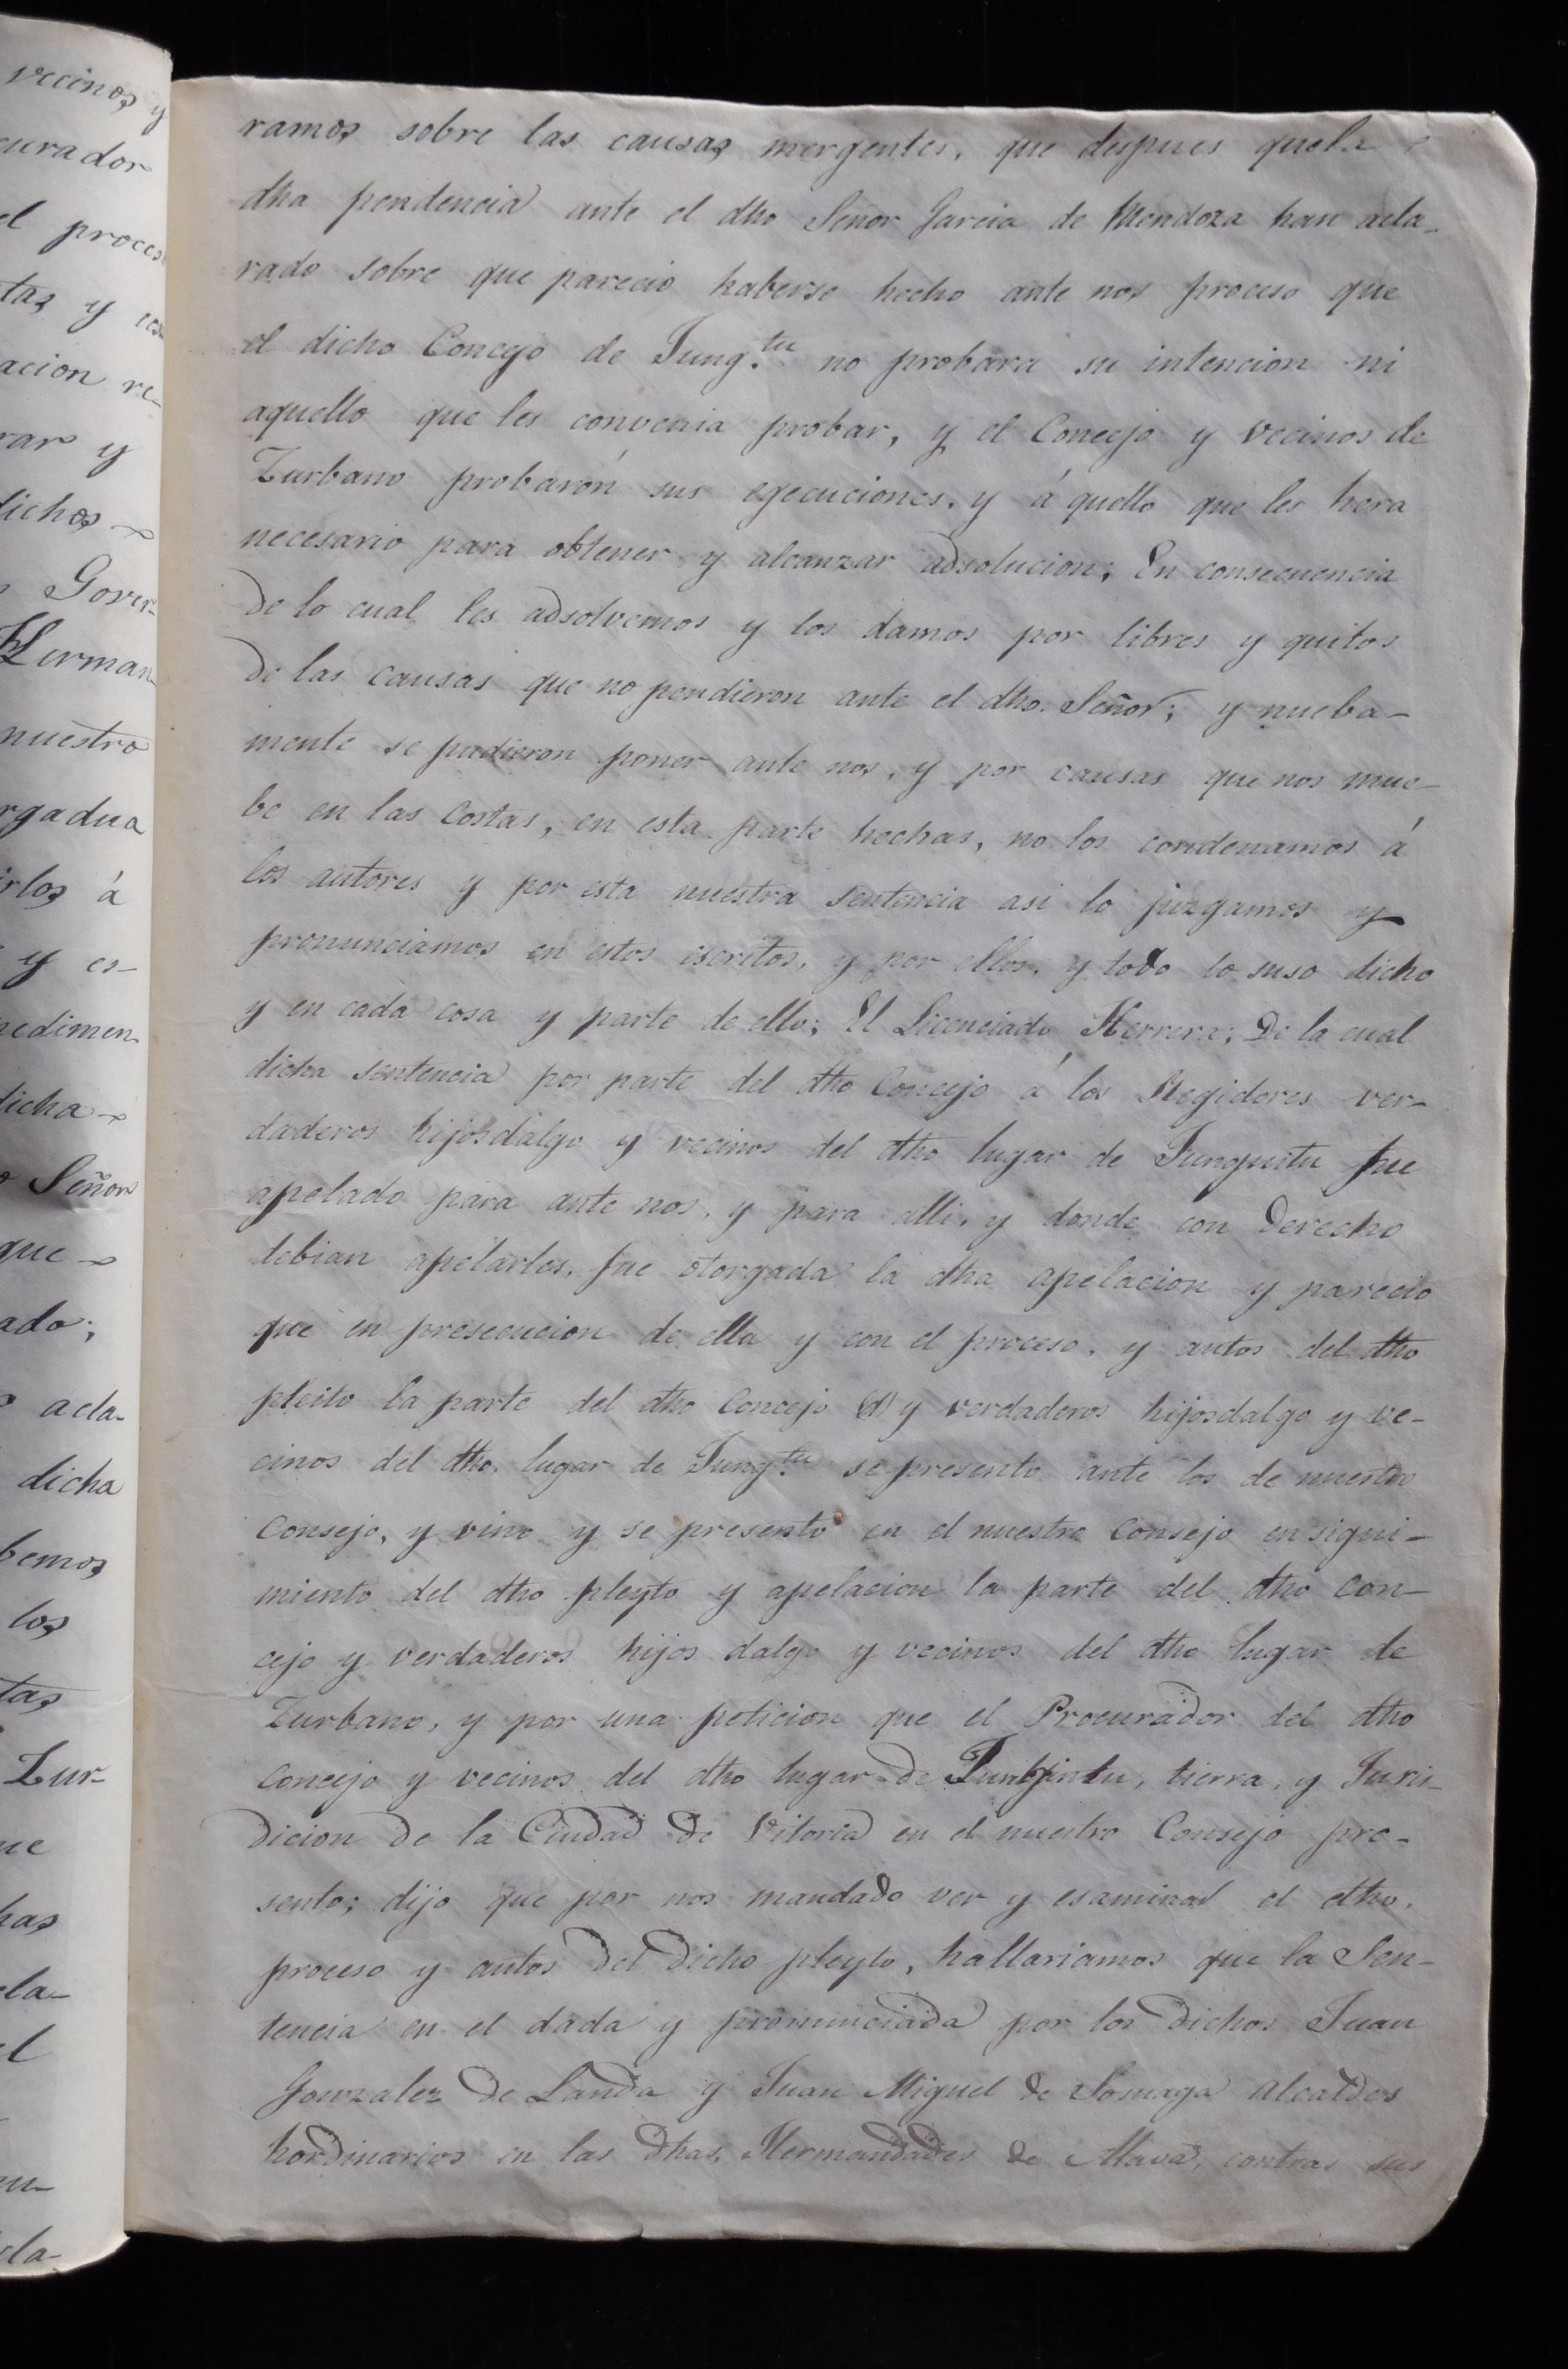 vecinos y
curador
el proces
tas y cos
acion re-
rar y
dichos
Gover-
Herman
nuestro
rgadua
irlos á
y es-
pedimen
dicha
Señor
que
ado;
acla-
dicha
bemos
los
tas
Zur-
ue
has
cla-
el
cla-
ramos sobre las causas mergentes, que despues quela
dha pendencia ante el dho Señor Garcia de Mendoza han acla-
rado sobre que parecio haberse hecho ante nos proceso que
el dicho Concejo de Jung.tu no probara su intencion ni
aquello que les convenia probar, y el Concejo y vecinos de
Zurbano probarón sus egecuciones, y á quello que les hera
necesario para obtener y alcanzar adsolucion; En consecuencia
de lo cual les adsolvemos y los damos por libres y quitos
de las causas que no pendieron ante el dho. Señor; y nueba-
mente se pudieron poner ante nos, y por causas que nos mue-
be en las costas, en esta parte hechas, no los condenamos á
los autores y por esta nuestra sentencia asi lo juzgamos y
pronunciamos en estos escritos, y por ellos, y todo lo suso dicho
y en cada cosa y parte de ello; El Licenciado Herrera; De la cual
dicha sentencia por parte del dho Concejo á los Regidores ver-
daderos hijosdalgo y vecinos del dho lugar de Junguitu fue
apelado para ante nos, y para alli, y donde con derecho
debian apelarlos, fue otorgada la dha apelacion y parecio
que en prosecucion de ella y con el proceso, y autos del dho
pleito la parte del dho Concejo (d) y verdaderos hijosdalgo y ve-
cinos del dho, lugar de Jung.tu se presento ante los de nuestro
Consejo, y vino y se presento en el nuestro Consejo en sigui-
miento del dho pleyto y apelacion la parte del dho con-
cejo y verdaderos hijos dalgo y vecinos del dho lugar de
Zurbano, y por una peticion que el Procurador del dho
concejo y vecinos del dho lugar de Junguitu, tierra, y Juris-
dicion de la Ciudad de Vitoria en el nuestro Consejo pre-
sento; dijo que por nos mandado ver y esaminar el dho.
proceso y autos del dicho pleyto, hallariamos que la Sen-
tencia en el dada y pronunciada por los dichos Juan
Gonzalez de Landa y Juan Miguel de Somaga alcaldes
hordinarios en las dhas, Hermandades de Alava, contras sus